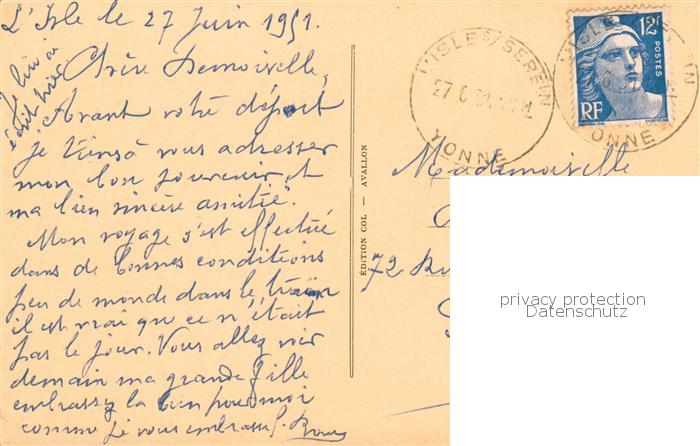 L'Isle le 27 Juin 1951.
Chère Demoiselle,
Avant votre départ
je tiens à vous adresser
mon bon souvenir et
ma bien sincère amitié.
Mon voyage s'est effectué
dans de bonnes conditions
peu de monde dans le train
il est vrai que ce n'était
pas le jour. Vous allez voir
demain ma grande fille
embrassez la bien pour moi
comme je vous embrasse.
Je lui ai
écrit hier
L'ISLE S/SEREIN
27 6 51
YONNE
12F
POSTES
RF
L'ISLE
IN
YONNE
ÉDITION COL — AVALLON
Mademoiselle
72 Ru
privacy protection
Datenschutz